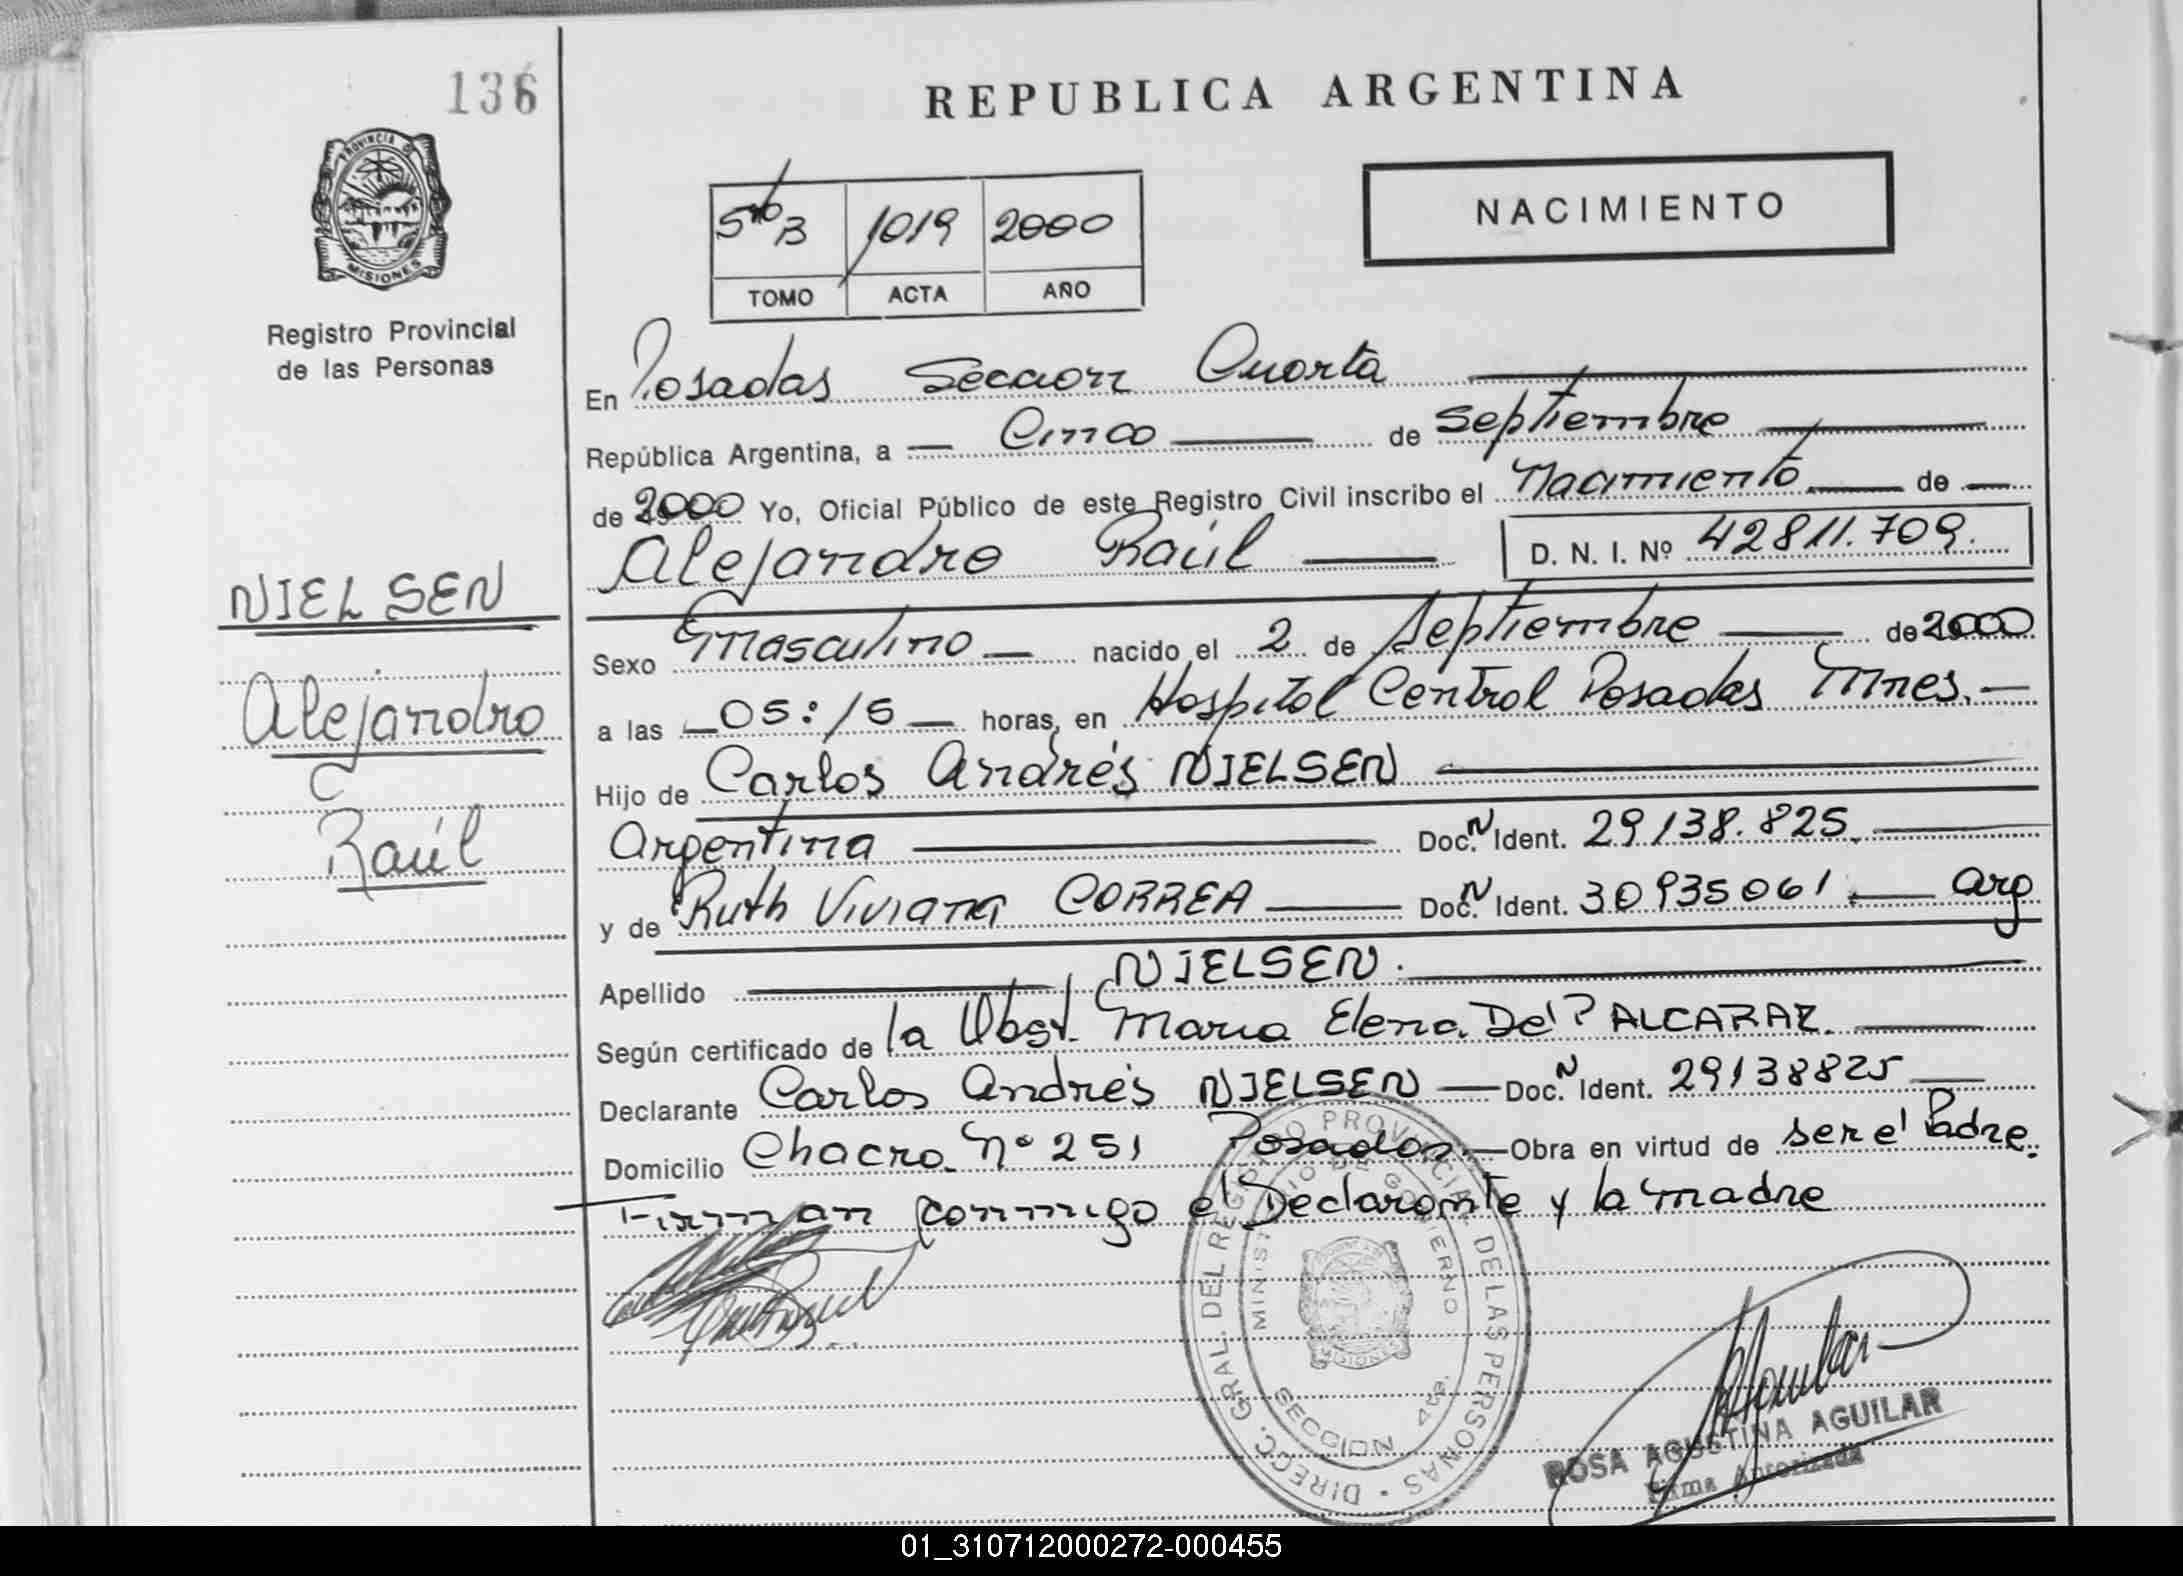 136
REPUBLICA ARGENTINA
PROVINCIA D
MISIONES
Registro Provincial
de las Personas
5to B 1019 2000
TOMO ACTA AÑO
NACIMIENTO
En Posadas Seccion Cuarta
República Argentina, a Cinco de Septiembre
de 2000 Yo, Oficial Público de este Registro Civil inscribo el Nacimiento de
Alejandro Raúl D. N. I. Nº 42811.709.
NIELSEN
Alejandro
Raúl
Sexo Masculino nacido el 2 de Septiembre de 2000
a las 05:15 horas, en Hospital Central Posadas Mnes.
Hijo de Carlos Andrés NIELSEN
Argentina Doc. N Ident. 29138.825
y de Ruth Viviana CORREA Doc. N Ident. 30935061 arg
Apellido NIELSEN.
Según certificado de la Obst. Maria Elena De ALCARAZ.
Declarante Carlos Andrés NIELSEN Doc. N Ident. 29138825
Domicilio Chacra Nº 251 Posadas Obra en virtud de ser el Padre.
Firman conmigo el Declarante y la madre
DIRECC. GRAL. DEL REGISTRO PROVINCIAL DE LAS PERSONAS
MINISTERIO DE GOBIERNO
MISIONES
SECCION 4ta.
ROSA AGUSTINA AGUILAR
Firma Autorizada
01_310712000272-000455